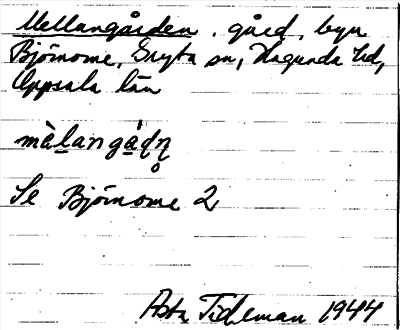 Mellangården, gård, byn
Björnome, Gryta sn, Hagunda hd,
Uppsala län
mèlangá̀ɖn̥
Se Björnome 2
Asta Tideman 1944